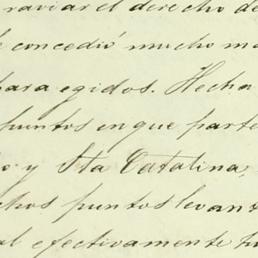 raviar el derecho de
concedió mucho ma
para egidos. Hecha
puntos en que parte
o y Sta Catalina,
chos puntos levant
al efectivamente hu